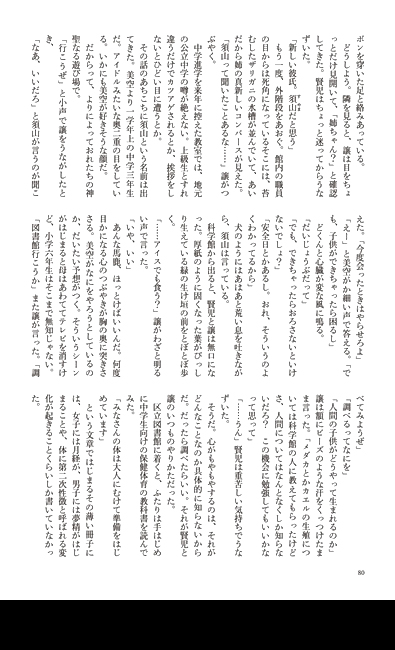 ボンを穿いた足と絡みあっている。
　どうしよう。隣を見ると、譲は目をちょ
っとだけ見開いて、「姉ちゃん？」と確認
してきた。賢児はちょっと迷ってからうな
ずいた。
「新しい彼氏。須山だと思う」
　もう一度、外階段をあおぐ。館内の職員
の目からは死角になっているそこには、苔
むしたザリガニの水槽が並んでいて、あい
だから姉の真新しいコンバースが見えた。
「須山って聞いたことあるな……」譲がつ
ぶやく。
　中学進学を来年に控えた教室では、地元
の公立中学の噂が絶えない。上級生とすれ
違うだけでカツアゲされるとか、挨拶をし
ないとひどい目に遭うとか。
　その話のあちこちに須山という名前は出
てきた。美空より一学年上の中学三年生
だ。アイドルみたいな奥二重の目をしてい
る。いかにも美空が好きそうな顔だ。
　だからって、よりによっておれたちの神
聖なる遊び場で。
「行こうぜ」と小声で譲をうながしたと
き、
「なあ、いいだろ」と須山が言うのが聞こ
えた。「今度会ったときはやらせろよ」
「えー」と美空がか細い声で答える。「で
も、子供ができちゃったら困るし」
　どくんと心臓が変な風に鳴る。
「だいじょうぶだって」
「でも、できちゃったらおろさないといけ
ないでしょ？」
「安全日とかあるし。おれ、そういうのよ
くわかってるから」
　犬のようにはあはあと荒い息を吐きなが
ら、須山は言っている。
　科学館から出ると、賢児と譲は無口にな
った。厚紙のように固くなった葉がびっし
り生えている緑の生け垣の前をとぼとぼ歩
く。
「……アイスでも食う？」譲がわざと明る
い声で言った。
「いや、いい」
　あんな馬鹿、ほっとけばいいんだ。何度
目かになる心のつぶやきが胸の奥に突きさ
さる。美空がなにをやろうとしているの
か、だいたい予想がつく。そういうシーン
がはじまると母はあわててテレビを消すけ
ど、小学六年生はそこまで無知じゃない。
「図書館行こうか」また譲が言った。「調
べてみようぜ」
「調べるってなにを」
「人間の子供がどうやって生まれるのか」
　譲は額にビーズのような汗をくっつけたま
ま言った。「メダカとかカエルの生殖につ
いては科学館の人に教えてもらったけど
さ、人間についてはなんとなくしか知らな
いだろ？　この機会に勉強してもいいかな
って思って」
「……うん」賢児は重苦しい気持ちでうな
ずいた。
　そうだ。心がもやもやするのは、それが
どんなことなのか具体的に知らないから
だ。だったら調べたらいい。それが賢児と
譲のいつものやりかただった。
　区立図書館に着くと、ふたりは手はじめ
に中学生向けの保健体育の教科書を読んで
みた。
「みなさんの体は大人にむけて準備をはじ
めています」
　という文章ではじまるその薄い冊子に
は、女子には月経が、男子には夢精がはじ
まることや、体に第二次性徴と呼ばれる変
化が起きることくらいしか書いていなかっ
た。
80